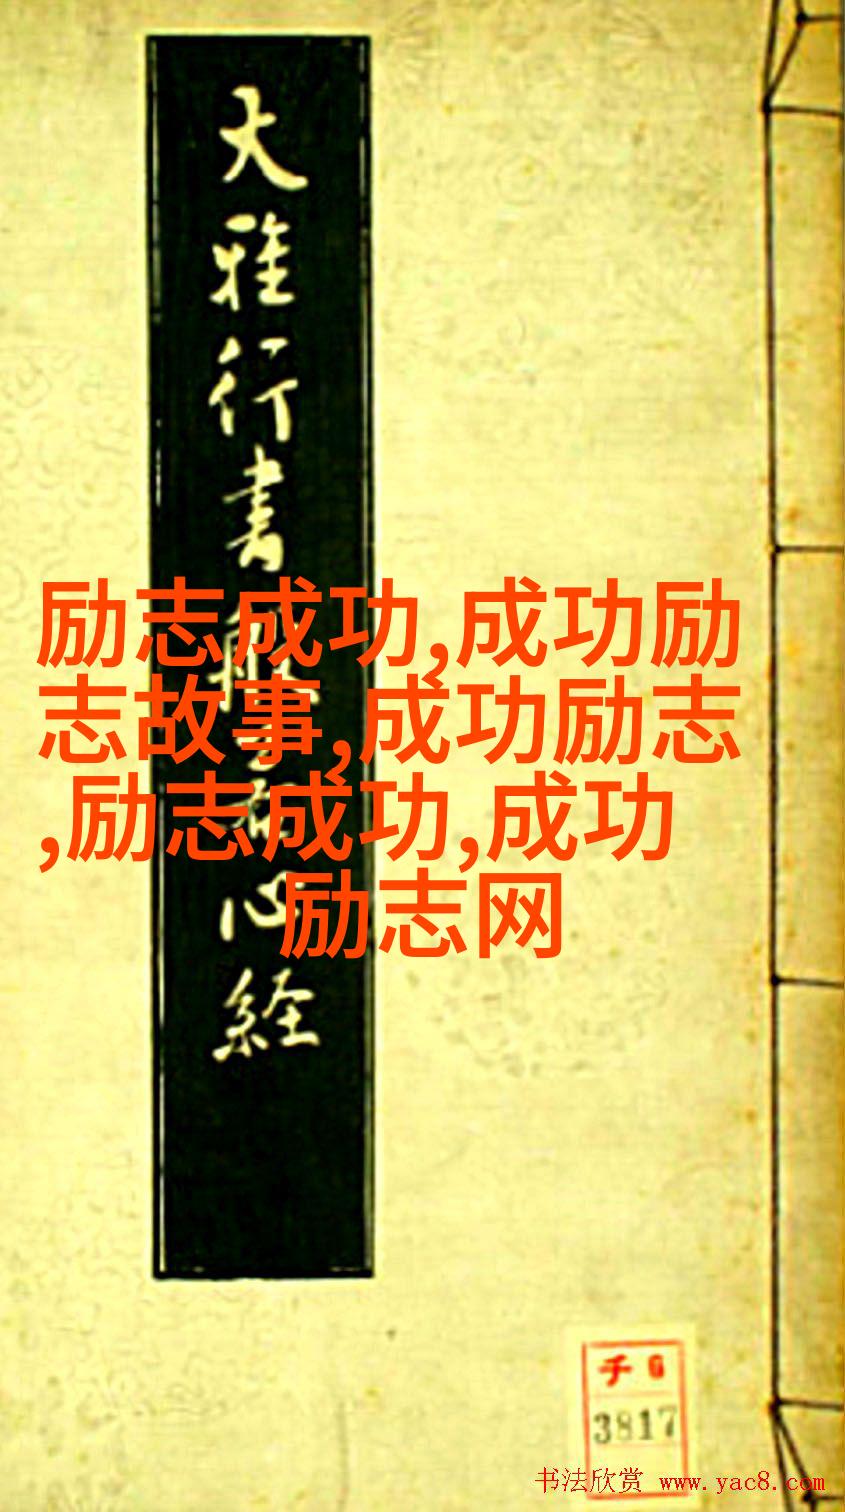 大雅行書般若心経
励志成功,成功励
志故事,成功励志
,励志成功,成功
励志网
チ6
3817
书法欣赏 www.yac8.com